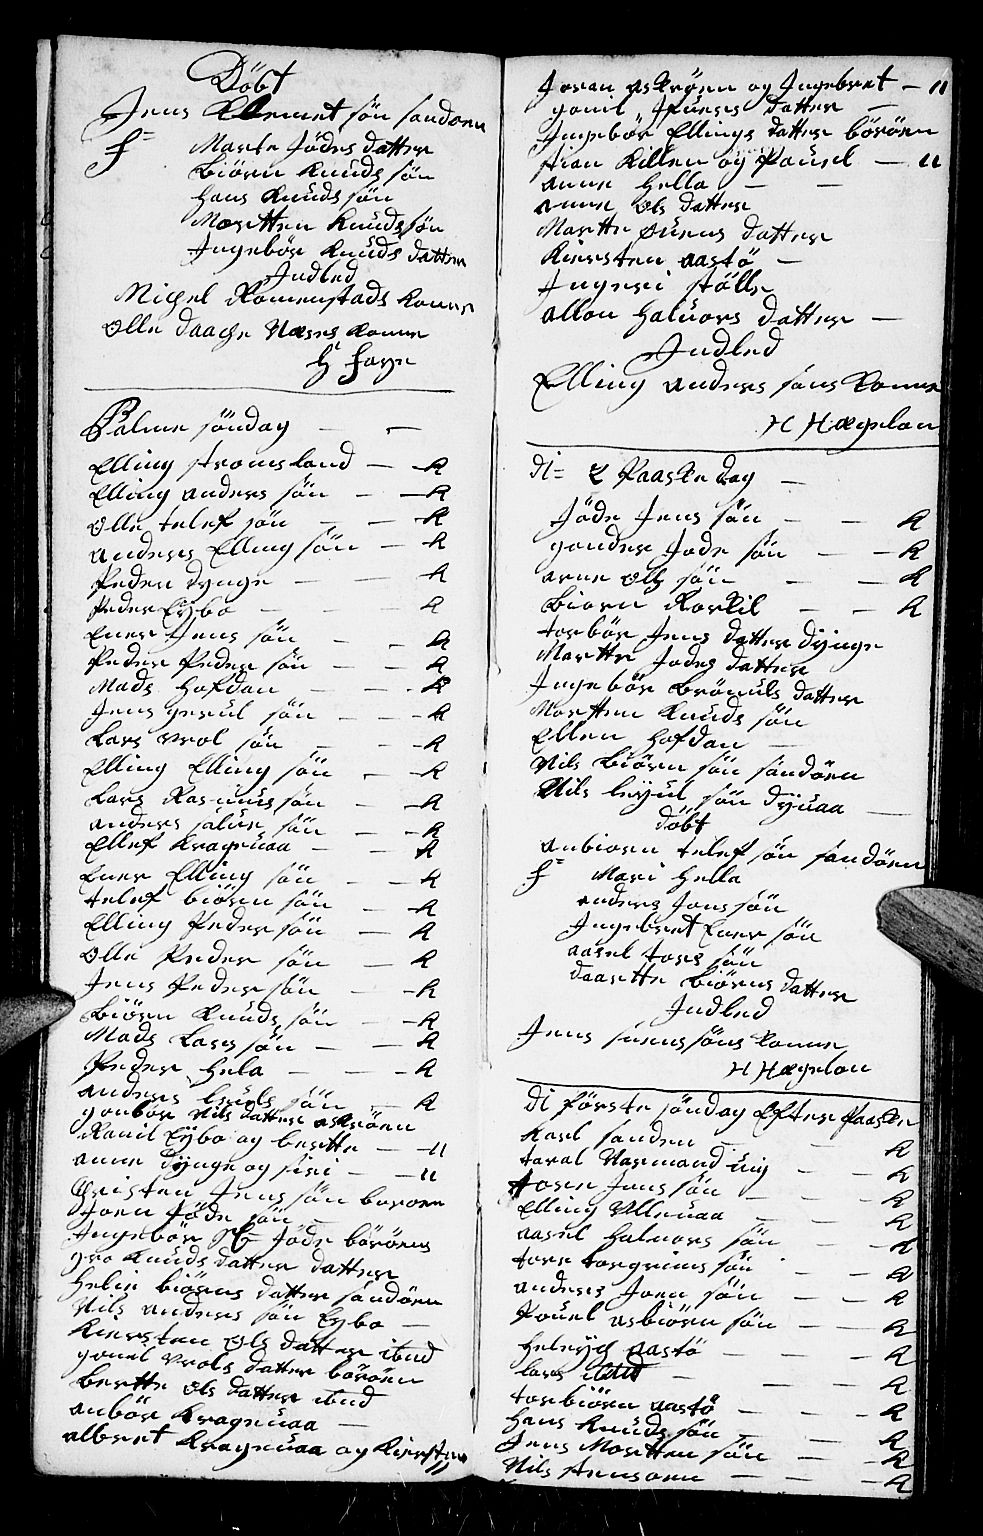 Döbt
Jens Klemet sön sandöen
f= Marte Jödes datter
Biörn Knuds sön
Hans Knuds sön
Mortten Knuds sön
Ingebör Knuds datter
Indled
Michel Romenstads Konne
Olle daache Næses Konne
H faye
Palme söndag —
Elling stromsland — R
Elling anders sön — R
Olle telef sön — R
anders Elling sön — R
Peder dynge — R
Peder Eybo — R
Ener Jens sön — R
Peder Peder sön — R
Mads Hofdan — R
Jens gerul sön — R
Lars Wrol sön — R
Elling Elling sön — R
Lars Rasmus sön — R
anders salue sön — R
Ellef Krageuaa — R
Ener Elling sön — R
telef biörn sön — R
Elling Peder sön — R
Olle Peder sön — R
Jens Peder sön — R
Biörn Knuds sön — R
Mads Lars sön — R
Peder Hela — R
anders sön — R
gonbör Nils datter askröen
Ranil Eybo og beritte — 11
anne dynge og siri — 11
Christen Jens sön boroen
Joen Jöde sön
Ingebör Jöde böröens
gro Knuds datter datter
Helie biörns datter sandöen
Nils anders sön Eybo —
Kiersten Ols datter ibid
gonel Wrols datter böröen
Beritte Ols datter ibid
anbör Krageuaa —
albret Krageuaa og Kiersten 11
Joran askröen og Ingebret — 11
gonil datter —
Ingebör Ellings datter böröen
stian Killen og Pouel — 11
anne Hella — —
anne Ols datter
Martte ouens datter
Kiersten aastö —
Ingeri stölle
allou Haluors datter —
Indled
Elling anders søns Konne
H Hægelan
di= 2 Paaske dag —
Jöde Jens sön — R
gonder Jode sön — R
arne Ols sön — R
Biorn Korkil — R
torbör Jens datter dynge
Martte Jodes datter
Ingebör Brönuls datter
Mortten Knuds sön
Ellen Hofdan —
Nils Biörn sön sandöen
Nils sön dyuaa —
döbt
anbiorn telef sön sandöen
f= Mari Hella
anders Jons sön
Ingebret Ener sön
aasel tors sön
daartte Biörns datter
Indled
Jens suenssöns Konne
H Hægelan
di förste söndag Efter Paaske
Karl sanden — R
taral Narmand ung — R
Joen Jens sön — R
Elling Ulleuaa — R
aasel Haluors sön — R
tore torgrims sön — R
anders Joen sön — R
Pouel asbiörn sön — R
Heleych aastö — R
lars ibid — R
torbiörn aastö — R
Hans Knuds sön — R
Jens Mortten sön — R
Nils stensoen — R